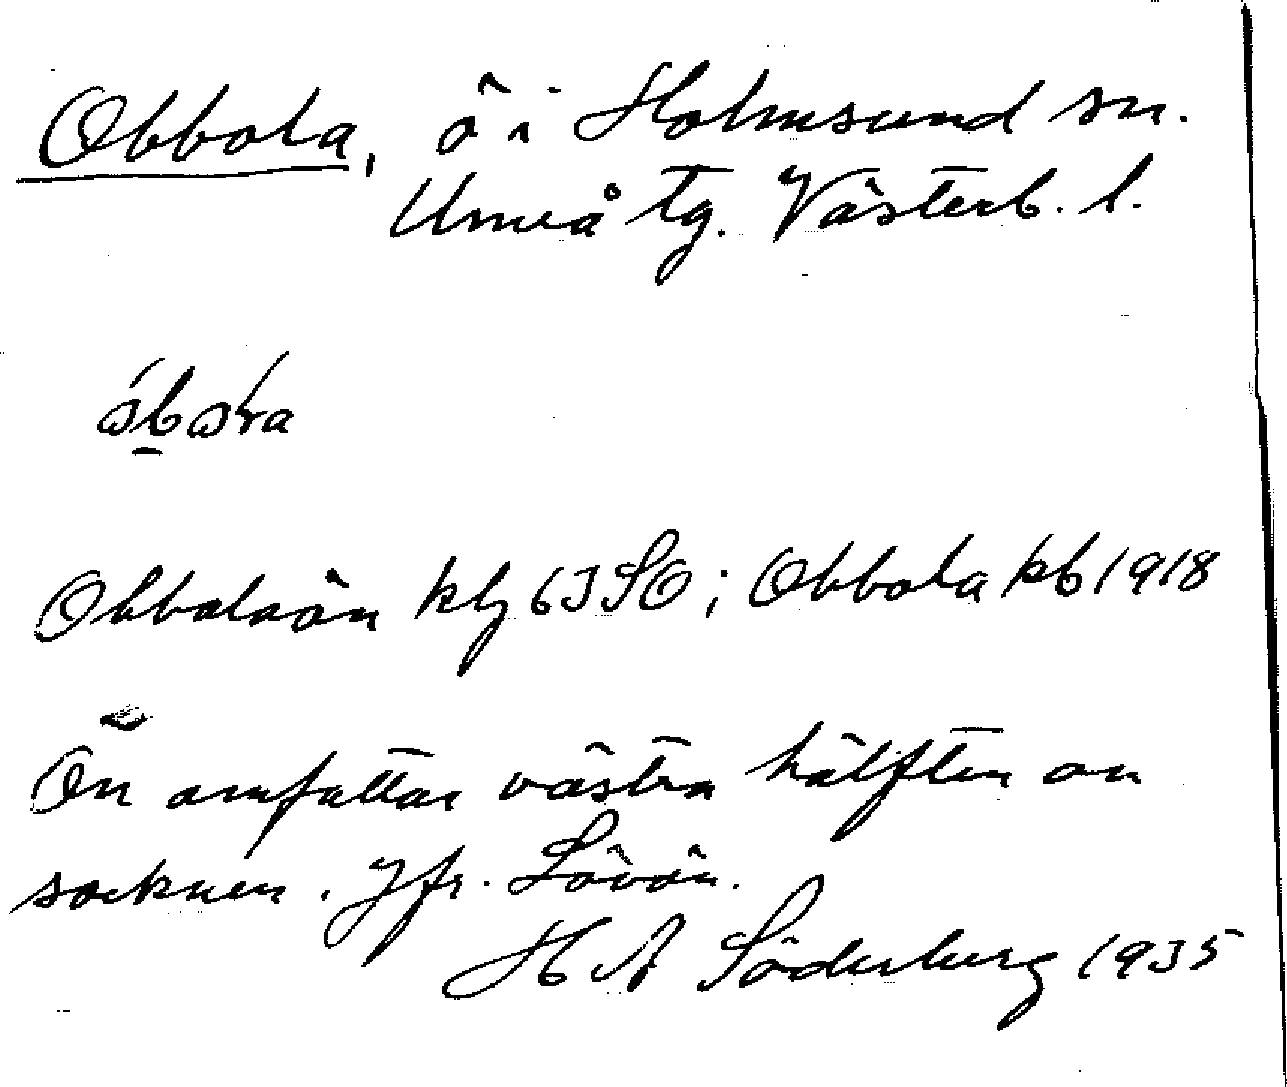 Obbola, ö i Holmsund sn.
Umeå tg. Västerb. l.
Obbolaön kbl 63 SO; Obbola kb 1918
Ön omfattar västra hälften av
socknen. Jfr. Lövön.
H A Söderberg 1935